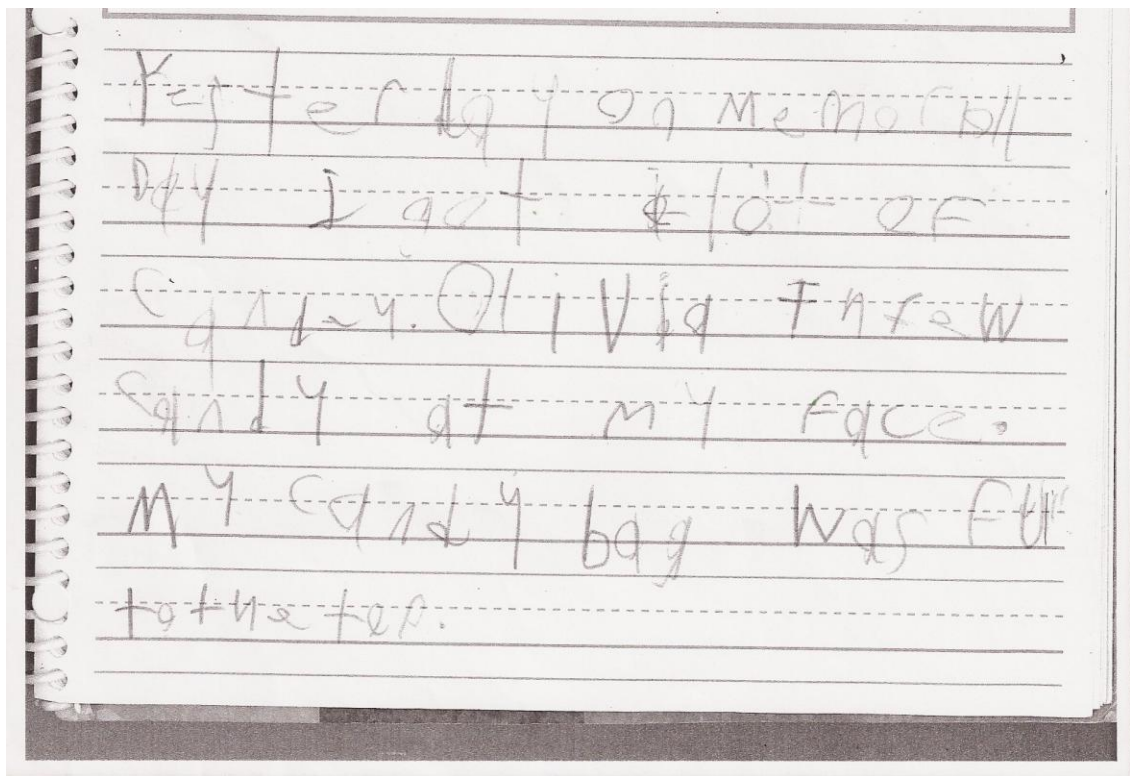 Yesterday on Memorall
Day I got a lot of
Candy. Olivia Threw
Candy at my face.
My candy bag was full
to the top.